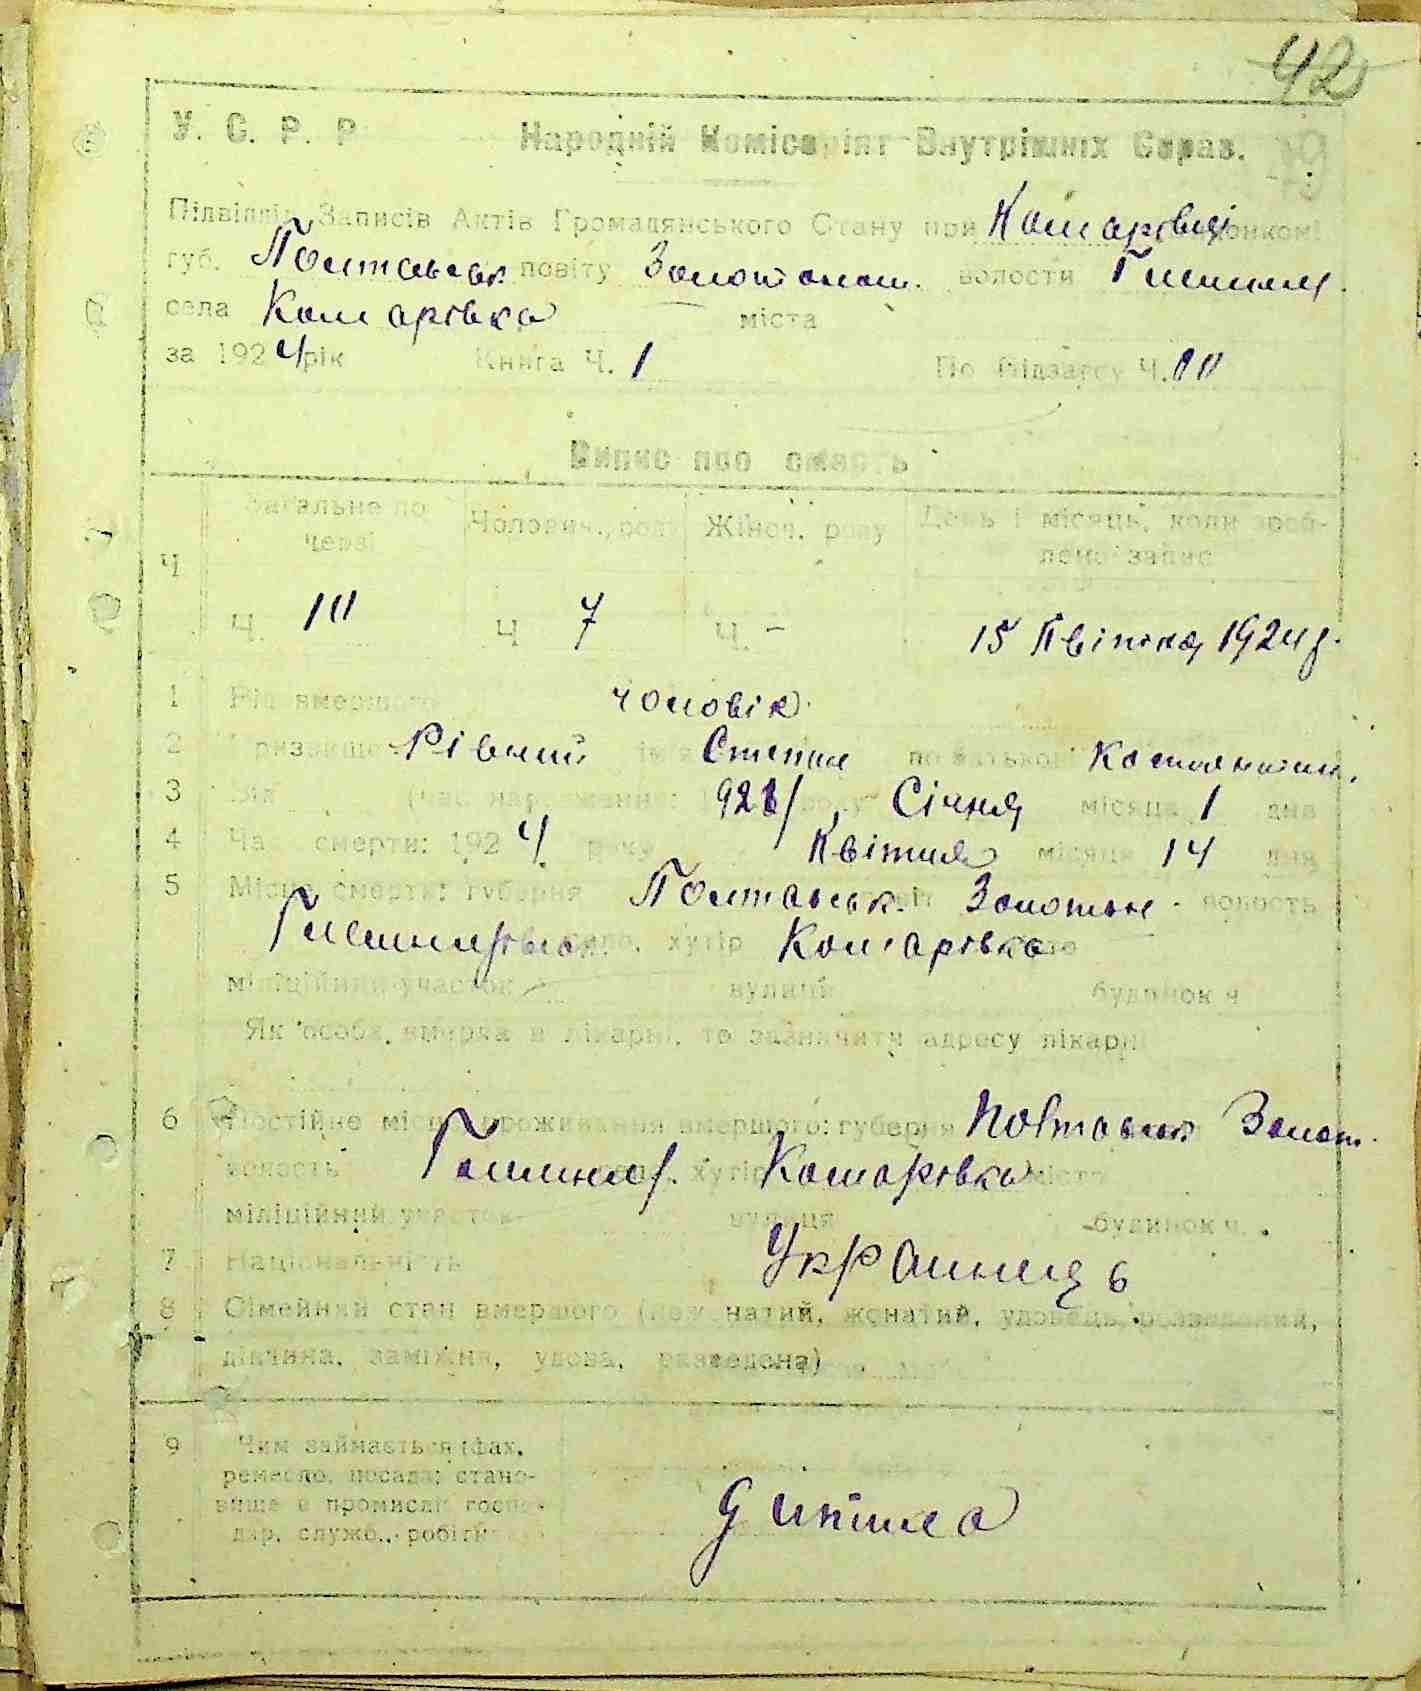 42
У. С. Р. Р. Народній Комісаріят Внутрішніх Справ.
Підвідділ Записів Актів Громадянського Стану при Комарівці
губ. Полтавськ. повіту Золотонош. волости
села Комарівка міста
за 1924 рік Книга Ч. 1 По Підзагсу Ч. 10
Випис про смерть
Ч Загальне по черзі Чолович. роду Жіноч. роду День і місяць, коли зроблено запис
Ч. 10 Ч 7 Ч. - 15 Квітня 1924 р.
1 Рід вмершого чоловік
2 Призвище Рівний ім'я Степан по батькові Костянтин.
3 Вік (час народження: 1921 року Січня місяця 1 дня
4 Час смерти: 1924 року Квітня місяця 14 дня
5 Місце смерти: губерня Полтавськ. Золотон. волость
село, хутір Комарівка
міліційний участок вулиця будинок ч
Як особа вмерла в лікарні, то зазначити адресу лікарні
6 Постійне місце проживання вмершого: губерня Полтавськ Золот.
волость хутір Комарівка місто
міліційний участок вулиця будинок ч.
7 Національність Українець
8 Сімейний стан вмершого (нежонатий, жонатий, удовець, розведений,
дівчина, заміжня, удова, розведена)
9 Чим займається (фах,
ремесло, посада; стано-
вище в промислі: госпо-
дар, служб., робітн
дитина